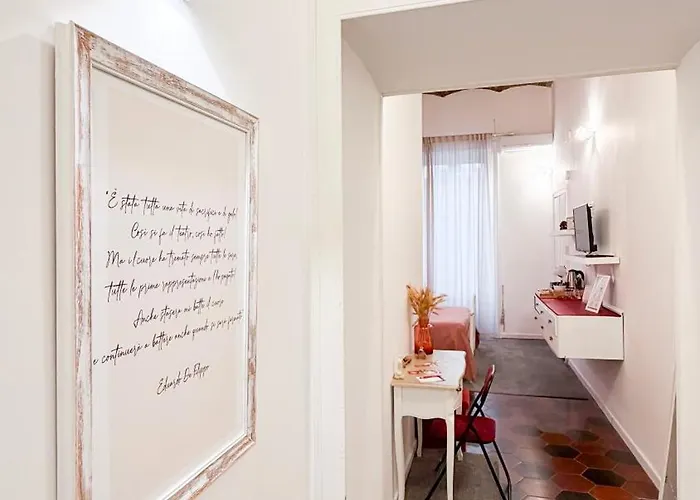 "È stata tutta una vita di sacrifici e di gelo!
Così si fa il teatro, così ho fatto!
Ma il cuore ha tremato sempre tutte le sere,
tutte le prime rappresentazioni e l'ho pagato!
Anche stasera mi batte il cuore
e continuerà a battere anche quando si sarà fermato"
Eduardo De Filippo